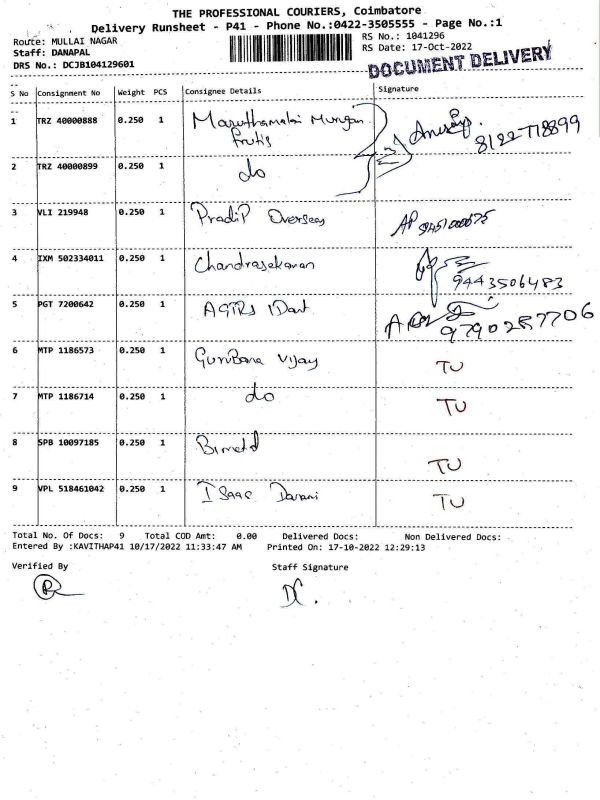 THE PROFESSIONAL COURIERS, Coimbatore
Delivery Runsheet - P41 - Phone No.:0422-3505555 - Page No.:1
Route: MULLAI NAGAR
Staff: DANAPAL
DRS No.: DCJB104129601
RS No.: 1041296
RS Date: 17-Oct-2022
DOCUMENT DELIVERY
S No Consignment No Weight PCS Consignee Details Signature
1 TRZ 40000888 0.250 1 Maruthamalai Murugan
fruits
8122718899
2 TRZ 40000899 0.250 1 do
3 VLI 219948 0.250 1 Pradip Overseas AP
4 IXM 502334011 0.250 1 Chandrasekaran
9443506483
5 PGT 7200642 0.250 1
9790257706
6 MTP 1186573 0.250 1 Vijay TU
7 MTP 1186714 0.250 1 do TU
8 SPB 10097185 0.250 1 TU
9 VPL 518461042 0.250 1 Isaac TU
Total No. Of Docs: 9 Total COD Amt: 0.00 Delivered Docs: Non Delivered Docs:
Entered By :KAVITHAP41 10/17/2022 11:33:47 AM Printed On: 17-10-2022 12:29:13
Verified By Staff Signature